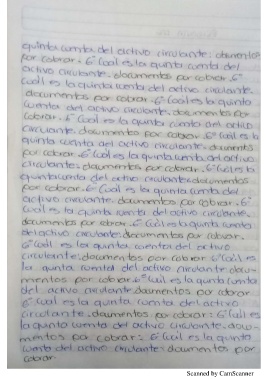 quinta cuenta del activo circulante: documentos
por cobrar. 6° Cual es la quinta cuenta del
activo circulante: documentos por cobrar. 6°
Cual es la quinta cuenta del activo circulante:
documentos por cobrar. 6° Cual es la quinta
cuenta del activo circulante: documentos por
cobrar. 6° Cual es la quinta cuenta del activo
circulante: documentos por cobrar. 6° Cual es la
quinta cuenta del activo circulante: documentos
por cobrar. 6° Cual es la quinta cuenta del activo
circulante: documentos por cobrar. 6° Cual es la
quinta cuenta del activo circulante: documentos
por cobrar. 6° Cual es la quinta cuenta del
activo circulante: documentos por cobrar. 6°
Cual es la quinta cuenta del activo circulante:
documentos por cobrar. 6° Cual es la quinta cuenta
del activo circulante: documentos por cobrar.
6° Cual es la quinta cuenta del activo
circulante: documentos por cobrar 6° Cual es
la quinta cuenta del activo circulante: docu-
mentos por cobrar. 6° Cual es la quinta cuenta
del activo circulante: documentos por cobrar.
6° Cual es la quinta cuenta del activo
circulante: documentos por cobrar: 6° Cual es
la quinta cuenta del activo circulante: docu-
mentos por cobrar: 6° Cual es la quinta
cuenta del activo circulante: documentos por
cobrar.
Scanned by CamScanner